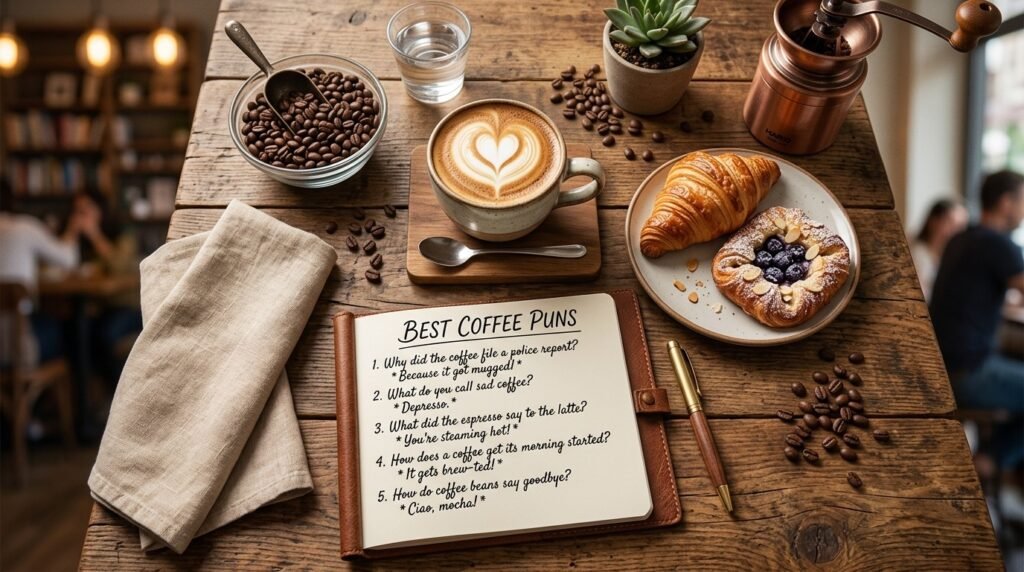 BEST COFFEE PUNS
1. Why did the coffee file a police report?
* Because it got mugged! *
2. What do you call sad coffee?
* Depresso. *
3. What did the espresso say to the latte?
* You're steaming hot! *
4. How does a coffee get its morning started?
* It gets brew-ted! *
5. How do coffee beans say goodbye?
* Ciao, mocha! *